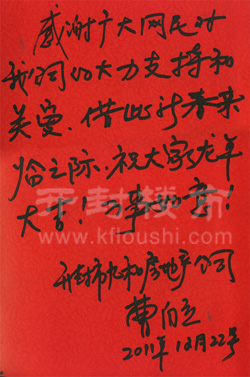 感谢广大网民对
我们的大力支持和
关爱、借此新春来
临之际、祝大家龙年
大吉!万事如意!
开封楼市
www.kfloushi.com
开封市九和房地产公司
曹自立
2011年12月22号